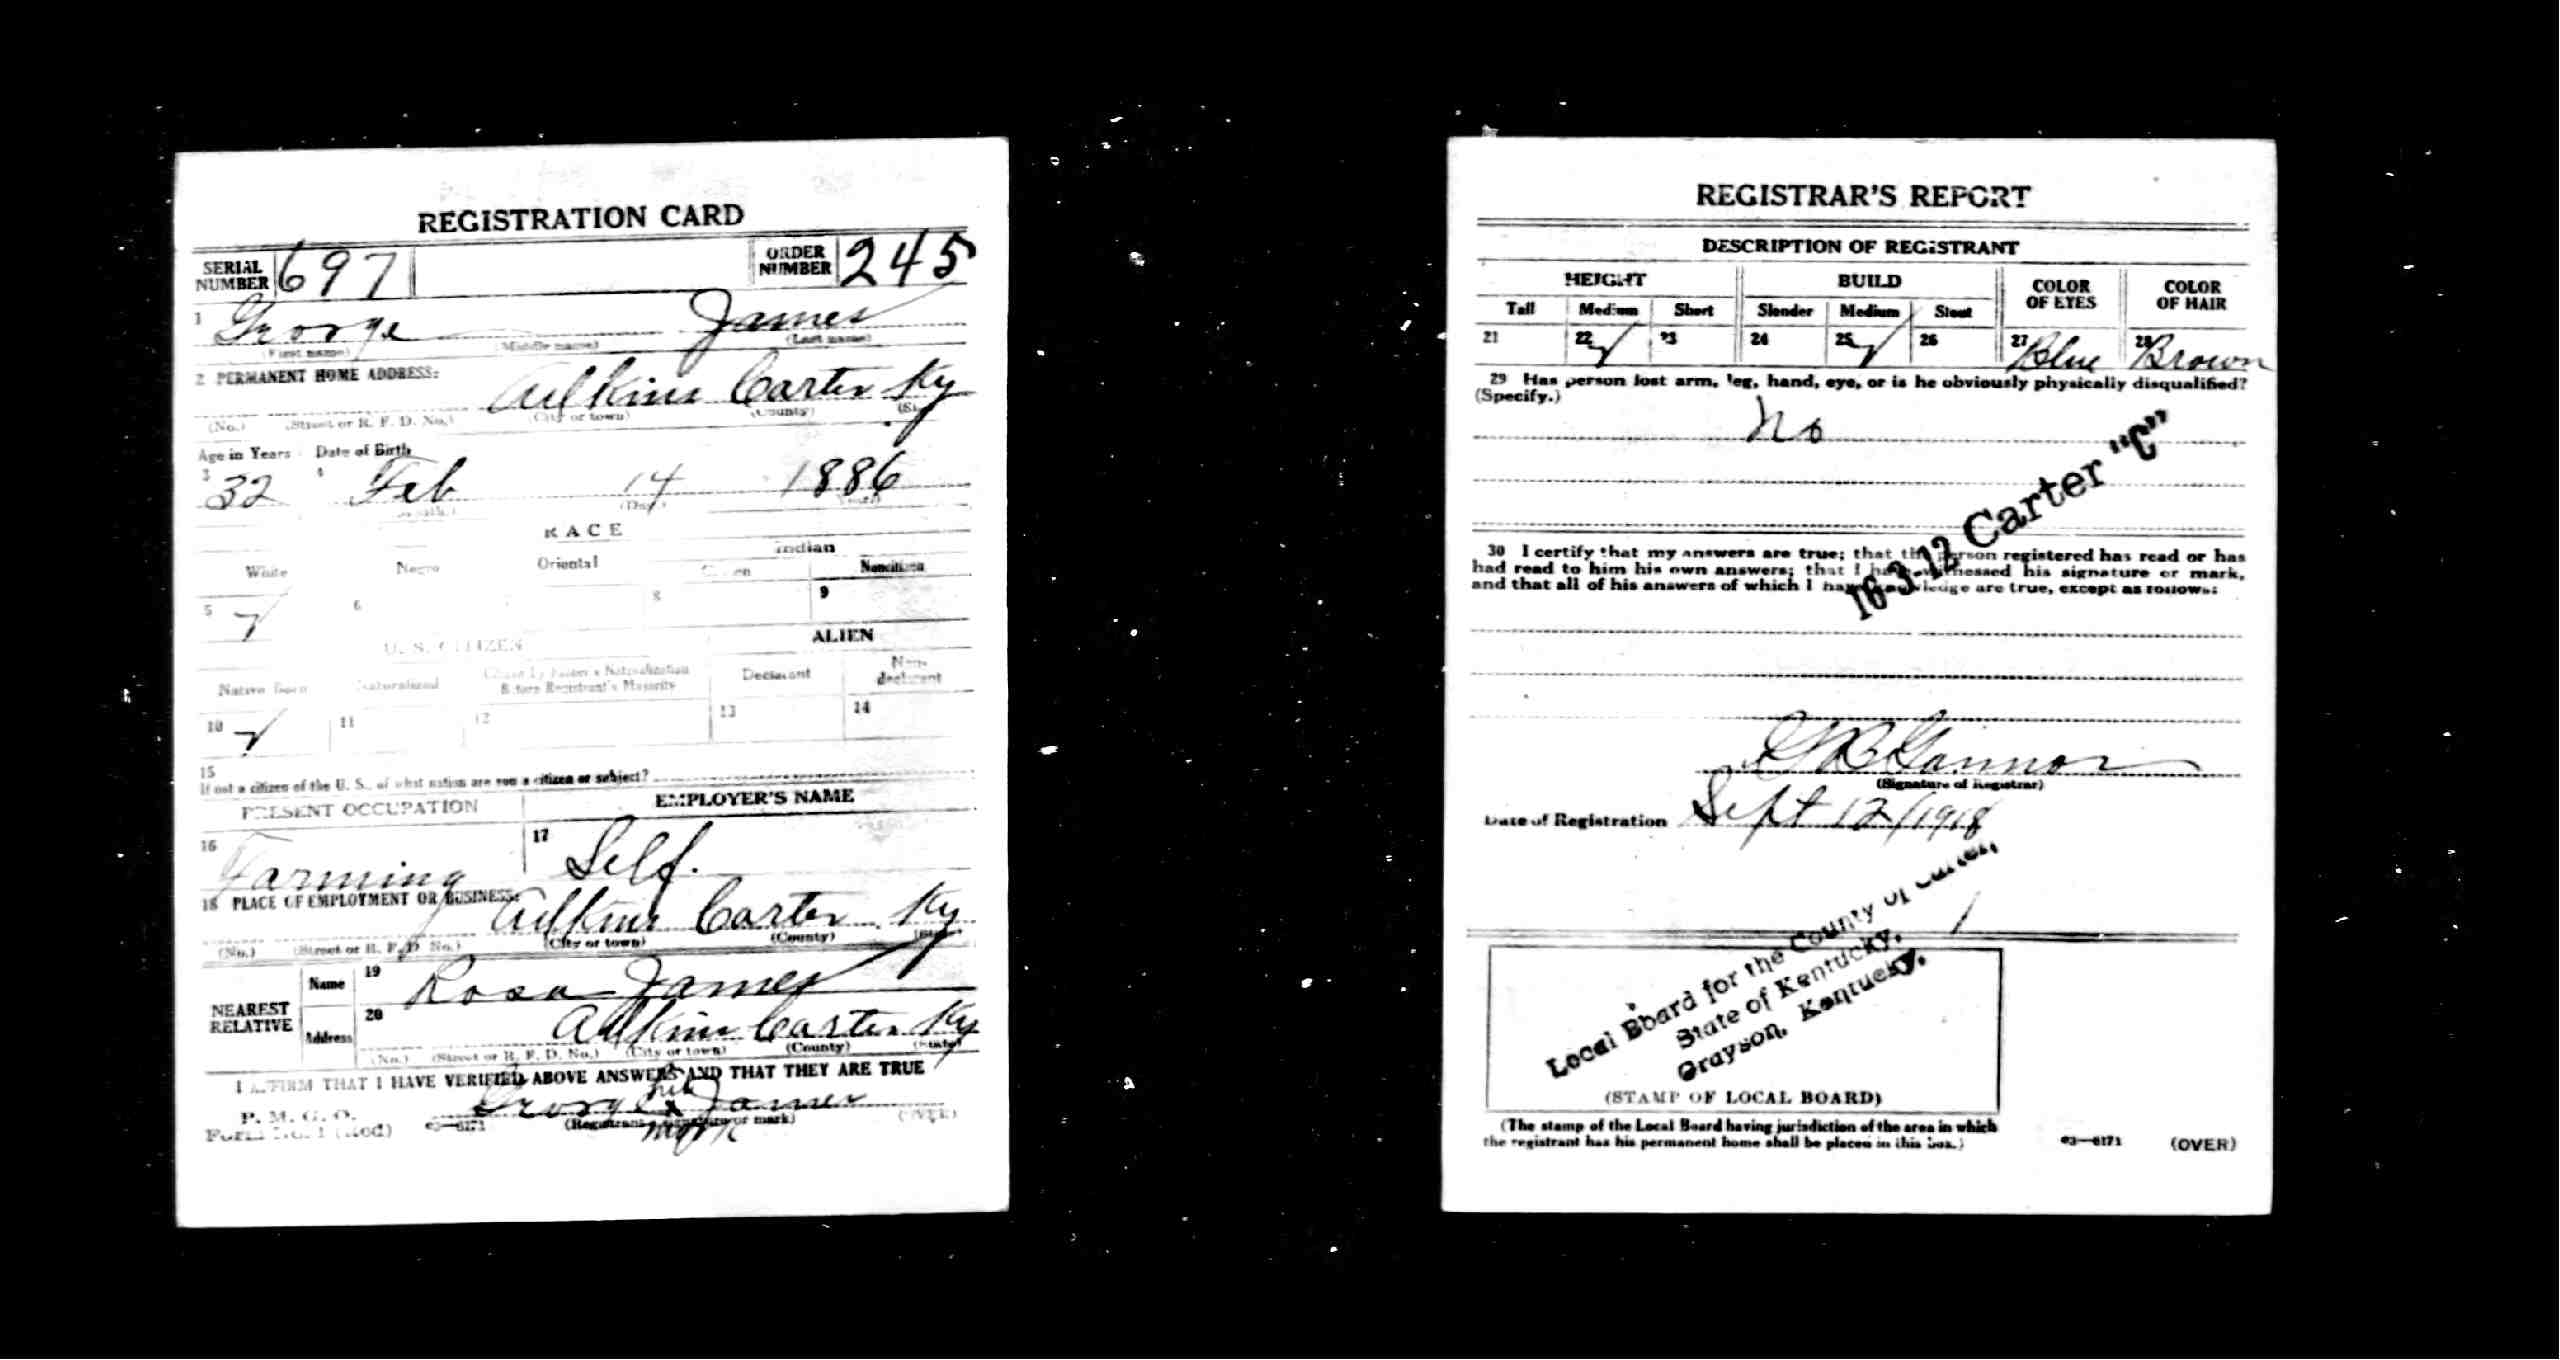 REGISTRATION CARD
SERIAL NUMBER 697 ORDER NUMBER 245
1 George James
(First name) (Middle name) (Last name)
2 PERMANENT HOME ADDRESS:
Adkins Carter Ky
(No.) (Street or R. F. D. No.) (City or town) (County)
Age in Years Date of Birth
3 32 4 Feb 14 1886
(Day)
RACE
White Negro Oriental Indian
Citizen Noncitizen
5 ✓ 6 8 9
U. S. CITIZEN ALIEN
Native Born Naturalized Citizen by Father's Naturalization Before Registrant's Majority Declarant Non-declarant
10 ✓ 11 12 13 14
15
If not a citizen of the U. S., of what nation are you a citizen or subject?
PRESENT OCCUPATION EMPLOYER'S NAME
16 Farming 17 Self.
18 PLACE OF EMPLOYMENT OR BUSINESS:
Adkins Carter Ky
(No.) (Street or R. F. D. No.) (City or town) (County) (State)
NEAREST RELATIVE
Name 19 Rosa James
Address 20 Adkins Carter Ky
(No.) (Street or R. F. D. No.) (City or town) (County) (State)
I AFFIRM THAT I HAVE VERIFIED ABOVE ANSWERS AND THAT THEY ARE TRUE
P. M. G. O.
Form No. 1 (Red) 03—6171
George his x mark James
(Registrant's signature or mark) (OVER)
REGISTRAR'S REPORT
DESCRIPTION OF REGISTRANT
HEIGHT BUILD COLOR OF EYES COLOR OF HAIR
Tall Medium Short Slender Medium Stout
21 22 ✓ 23 24 25 ✓ 26 27 Blue 28 Brown
29 Has person lost arm, leg, hand, eye, or is he obviously physically disqualified?
(Specify.)
No
16-3-12 Carter "C"
30 I certify that my answers are true; that the person registered has read or has
had read to him his own answers; that I have witnessed his signature or mark,
and that all of his answers of which I have knowledge are true, except as follows:
(Signature of Registrar)
Date of Registration Sept 12/1918
Local Board for the County of Carter,
State of Kentucky,
Grayson, Kentucky.
(STAMP OF LOCAL BOARD)
(The stamp of the Local Board having jurisdiction of the area in which
the registrant has his permanent home shall be placed in this box.)
03—6171 (OVER)